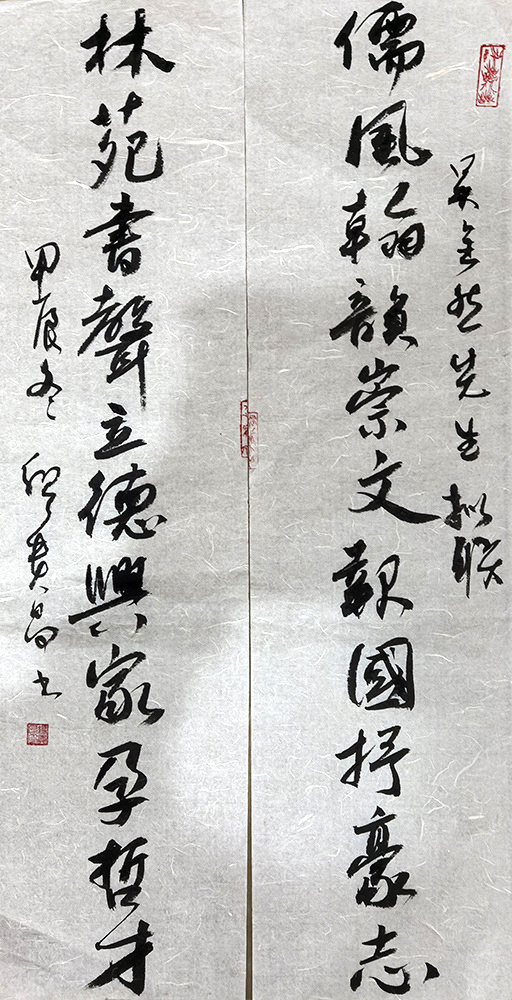 吴金然先生拟联
儒風翰韻崇文報國抒豪志
林苑書聲立德興家孕哲才
甲辰冬 貴昌书